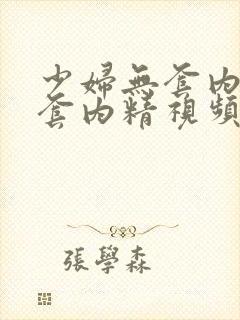 少婦無套内
套内精視頻
張學森